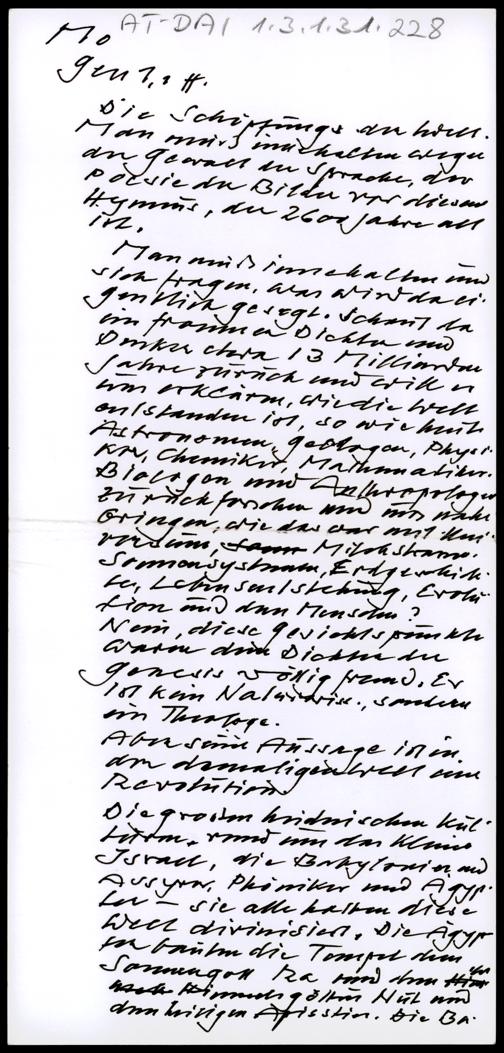 AT-DAI 1.3.1.31.228
Mo
Gen 1, 1 ff.
Die Schöpfung der Welt.
Man muß innehalten wegen
der Gewalt der Sprache, der
Poesie der Bilder vor diesem
Hymnus, der 2600 Jahre alt
ist.
Man muß innehalten und
sich fragen, was wird da ei-
gentlich gesagt. Schaut da
ein frommer Dichter und
Denker etwa 13 Milliarden
Jahre zurück und will er
uns erklären, wie die Welt
entstanden ist, so wie heute
Astronomen, Geologen, Physi-
ker, Chemiker, Mathematiker,
Biologen und Anthropologen
zurückforschen und uns nahe
bringen, wie das war mit Uni-
versum, Milchstrasse,
Sonnensystem, Erdgeschich-
te, Lebensentstehung, Evolu-
tion und dem Menschen?
Nein, diese Gesichtspunkte
waren dem Dichter der
Genesis völlig fremd. Er
ist kein Naturwiss., sondern
ein Theologe.
Aber seine Aussage ist in
der damaligen Welt eine
Revolution.
Die großen heidnischen Kul-
turen, rund um das kleine
Israel, die Babylonier und
Assyrer, Phöniker und Ägyp-
ter – sie alle hatten diese
Welt divinisiert. Die Ägyp-
ter bauten die Tempel dem
Sonnengott Ra und der
Himmelsgöttin Nut und
dem heiligen Apisstier. Die Ba-